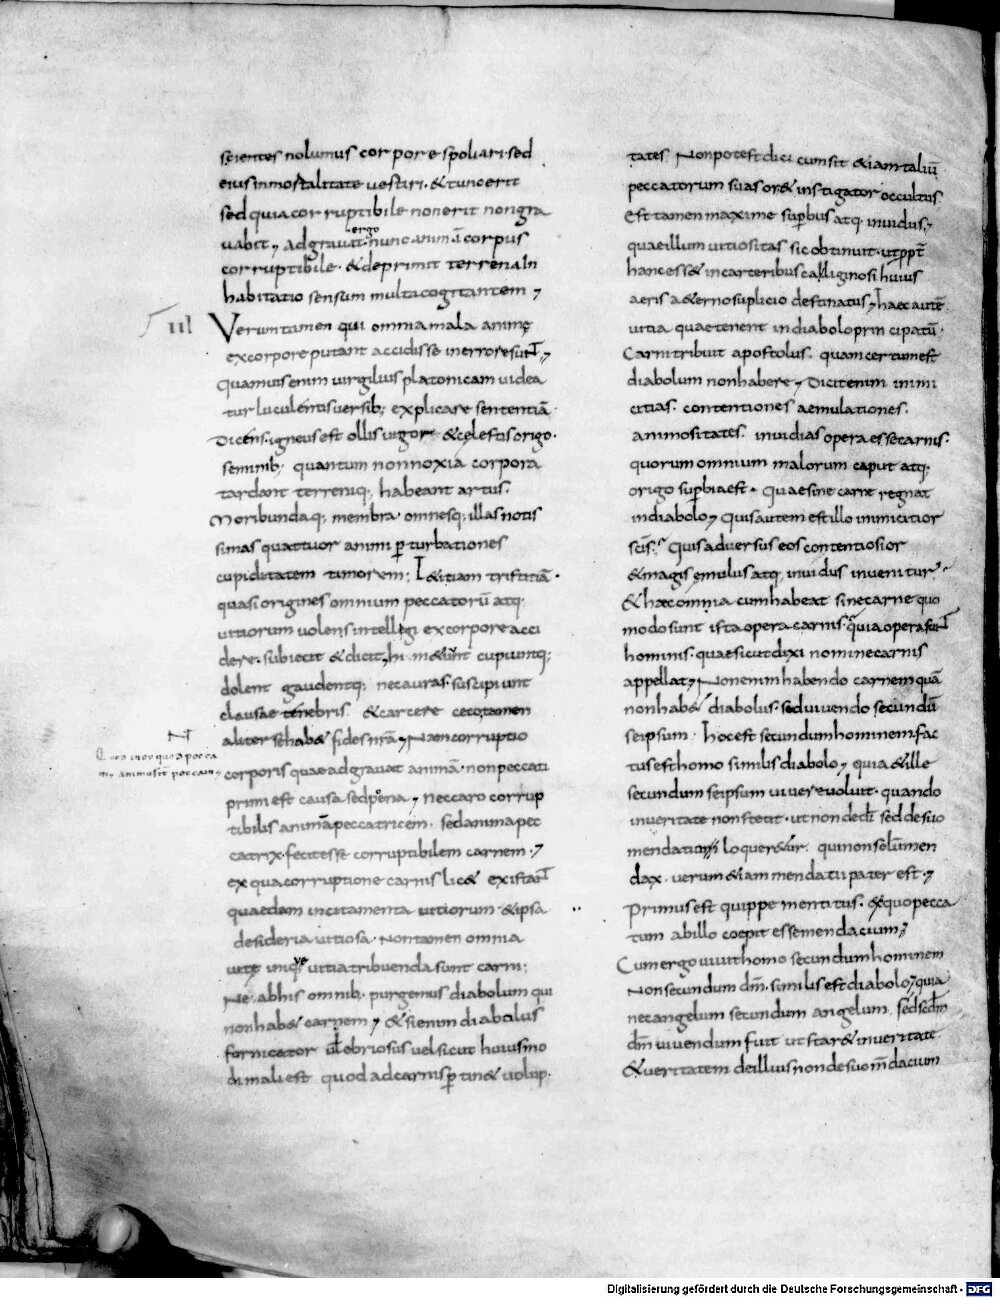 scientes nolumus corpore spoliari· sed
eius inmortalitate uestiri· & tunc erit
sed quia corruptibile non erit non gra
uabit; Adgrauat ergo nunc animā corpus
corruptibile· & deprimit terrena In
habitatio sensum multa cogitantem;
III Verumtamen qui omnia mala animę
ex corpore putant accidisse in errore sunt;
Quamuis enim uirgilius platonicam uidea
tur luculentis uersib; explicare sententiā·
Dicens· igneus est ollis uigor & cęlestis origo·
seminib; quantum non noxia corpora
tardant terreniq; habeant artus·
Moribundaq; membra· omnesq; illas notis
simas quattuor animi ꝑturbationes
cupiditatem timorem; l&itiam tristitiā·
quasi origines omnium peccatorū atq·
uitiorum uolens intellegi ex corpore acci
dere· subiecit & dicit, hi⁠n m&uunt cupiuntq;
dolent gaudentq; nec auras· suscipiunt
clausae tenebris· & carcere ceco tamen
aliter se hab& fides nrā; Nam corruptio
corporis quae adgrauat animā· non peccati
primi est causa sed poena; nec caro corrup
tibilis animā peccatricem· sed anima pec
catrix· fecit esse corruptibilem carnem·;
ex qua corruptione carnis lic& existant
quaedam incitamenta uitiorum· & ipsa
desideria uitiosa· non tamen omnia
uitę iniquę uitia tribuenda sunt carni;
Ne· ab his omnib· purgemus diabolum qui
non hab& carnem; & si enim diabolus
fornicator uł ebriosus uel si cut huiusmo
di mali est quod ad carnis ꝑtin& uolup·
tates· Non potest dici cum sit & iam taliū
peccatorum suasor & instigator occultus
est tamen maxime suꝑbus atq· inuidus;
quae illum uitiositas sic obtinuit· ut ꝓpt̄
hanc ess& in carceribus caliginosi huius
aeris a&erno suplicio destinatus; haec autē
uitia quae tenent in diabolo principatū·
Carni tribuit apostolus· quam certum est
diabolum non habere; Dicit enim inimi
citias· contentiones aemulationes·
animositates· inuidias opera esse carnis·
quorum omnium malorum caput atq·
origo suꝑbia est· Quae sine carne regnat
in diabolo; Quis autem est illo inimicitior
scīs? Quis aduersus eos contentiosior
& magis ęmulus atq· inuidus inuenitur?
& haec omnia cum habeat sine carne quo
modo sunt ista opera carnis· quia opera sunt
hominis· quae sicut dixi nomine carnis
appellat; Non enim habendo carnem quā
non hab& diabolus· sed uiuendo secundū
seipsum· hoc est secundum hominem fac
tus est homo similis diabolo; quia & ille
secundum seipsum uiuere uoluit· quando
in ueritate non stetit· ut non de dī sed de suo
mendatium loquer&ur· qui non solum men
dax· uerum & iam mendatii pater est·;
Primus est quippe mentitus· & quo pecca
tum ab illo coepit esse mendacium;
Cum ergo uiuit homo secundum hominem
Non secundum dm̄· similis est diabolo; quia
nec angelum secundum angelum· sed sedm̄
dm̄ uiuendum fuit ut star& in ueritate·
& ueritatem de illius non de suo mdacium
Digitalisierung gefördert durch die Deutsche Forschungsgemeinschaft - DFG